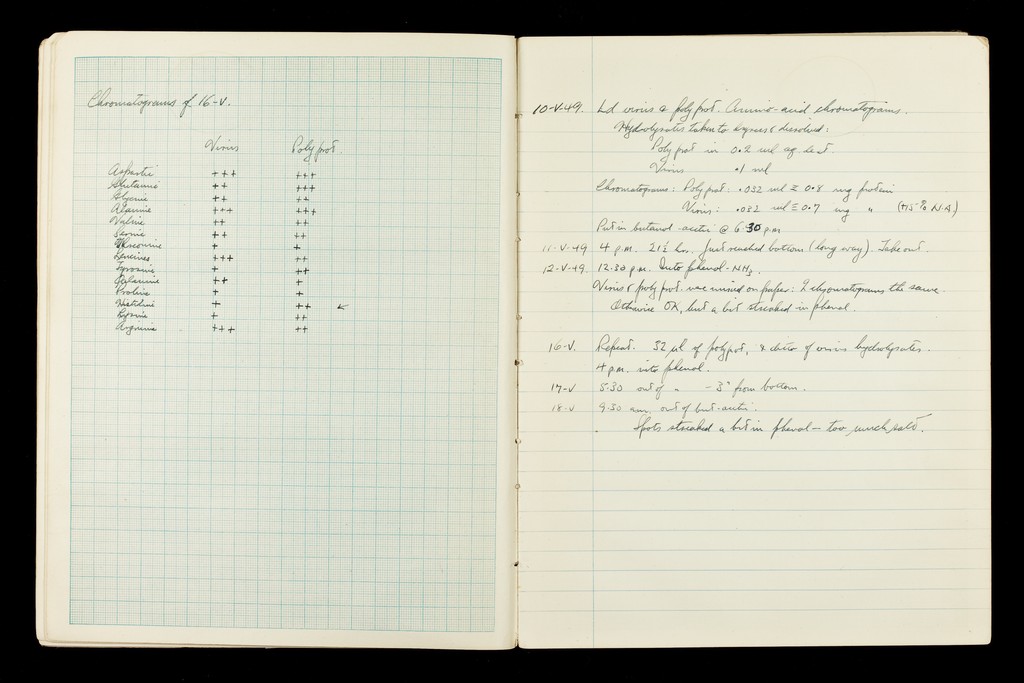 Chromatograms of 16-V.
Virus Poly prot.
Aspartic +++ +++
Glutamic ++ +++
Glycine ++ ++
Alanine +++ +++
Valine ++ ++
Serine ++ ++
Threonine + +
Leucines +++ ++
Tyrosine + ++
φalanine ++ +
Proline + +
Histidine + ++ ←
Lysine + ++
Arginine +++ ++
10-V-49. Ld virus & poly prot. Amino-acid chromatograms.
Hydrolysates taken to dryness & dissolved:
Poly prot in 0.2 ml aq. dest.
Virus .1 ml
Chromatograms: Poly prot: .032 ml ≡ 0.8 mg protein
Virus: .032 ml ≡ 0.7 mg " (+15% N.A)
Put in butanol-acetic @ 6.30 p.m.
11-V-49 4 p.m. 21½ hrs. Just reached bottom (long way). Take out.
12-V-49. 12.30 p.m. Into phenol-NH3.
Virus & poly prot. were mixed on paper: 2 chromatograms the same.
Otherwise OK, but a bit streaked in phenol.
16-V. Repeat. 32 μl of polyprot, & ditto of virus hydrolysates.
4 p.m. into phenol.
17-V 5.30 out of " - 3" from bottom.
18-V 9.30 a.m. out of but-acetic.
Spots streaked a bit in phenol — too much salt.